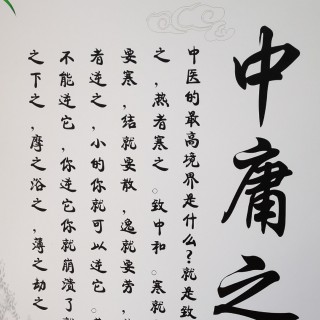 中庸之
中医的最高境界是什么？就是致
之，热者寒之。致中和。寒就
要寒，结就要散，逸就要劳，
者逆之，小的你就可以逆它。
不能逆它，你逆它你就崩溃了
之下之，摩之浴之，薄之劫之